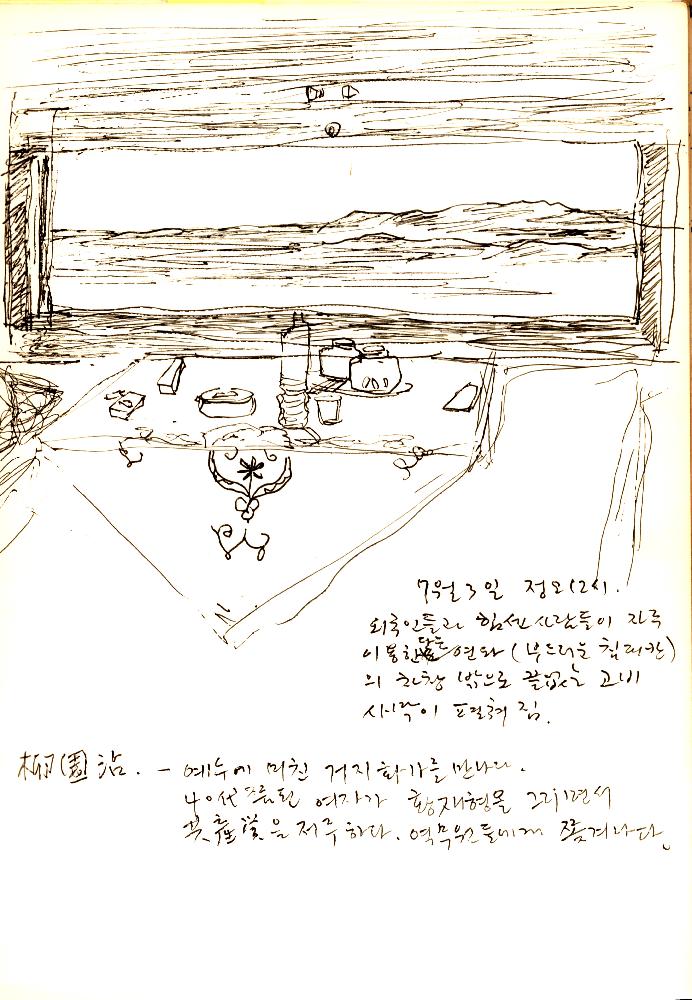 7월 3일 정오 12시.
외국인들과 힘센 사람들이 자주
이용한다는 연와 (부드러운 침대칸)
의 차창 밖으로 끝없는 고비
사막이 펼쳐 짐.
柳園站. - 예수에 미친 거지화가를 만나다.
40代쯤된 여자가 황재형을 그리면서
共産党을 저주하다. 역무원들에게 쫓겨나다.